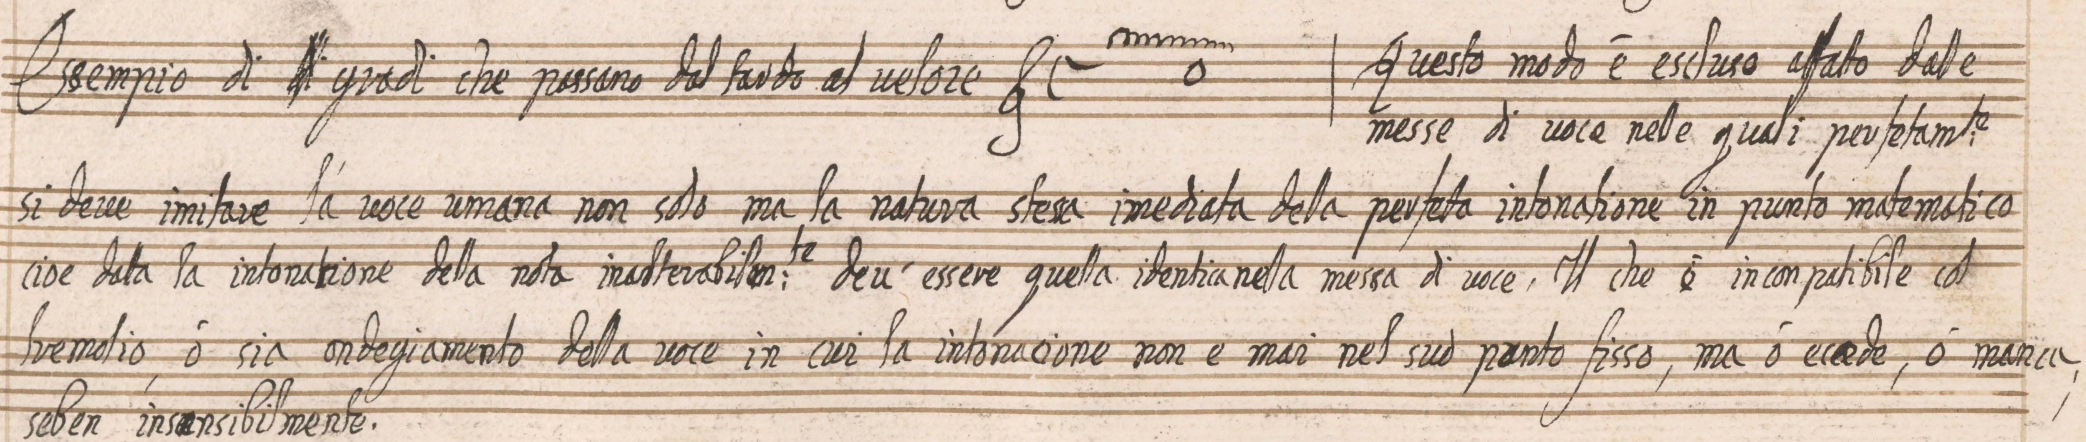 Essempio di gradi che passano dal tardo al velore
Questo modo è escluso affatto dalle
messe di voce nelle quali perfetam:te
si deve imitare là voce umana non solo ma la natura stessa imediata della perfeta intonatione in punto matematico
cioe data la intonatione della nota inalterabilm:te deu' essere quella identica nella messa di voce. Il che è inconpatibile col
tremolio, ó sia ondegiamento della voce in cui la intonacione non e mai nel suo punto fisso, ma ó ecede, ó manca,
seben insensibilmente.